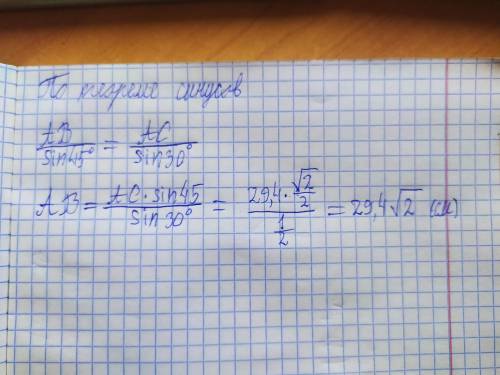 По теореме синусов
AB/sin45° = AC/sin30°
AB = AC · sin45/sin30° = 29,4 · √2/2 / 1/2 = 29,4√2 (см)